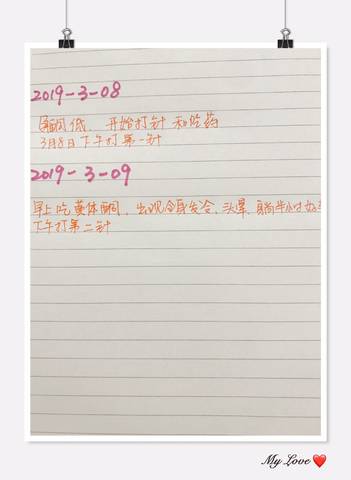 2019-3-08
孕酮低、开始打针和吃药
3月8日下午打第一针
2019-3-09
早上吃黄体酮,出现全身发冷,头晕,躺半小时
下午打第二针
My Love